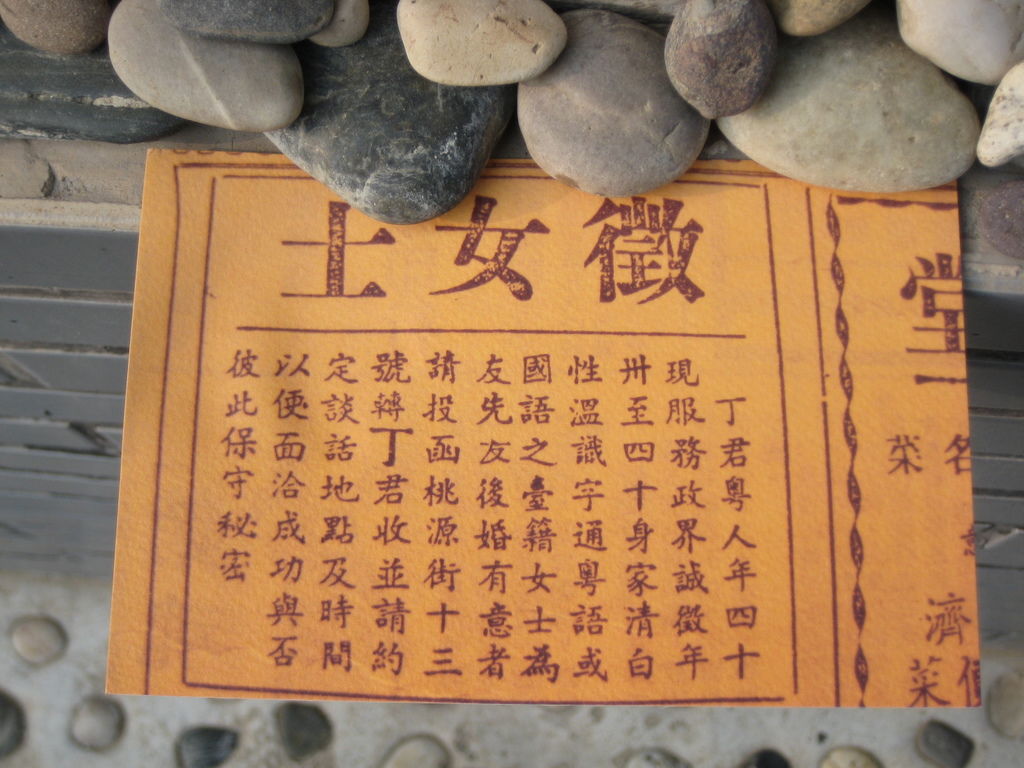 徵女士
丁君粵人年四十
現服務政界誠徵年
卅至四十身家清白
性溫識字通粵語或
國語之臺籍女士為
友先友後婚有意者
請投函桃源街十三
號轉丁君收並請約
定談話地點及時間
以便面洽成功與否
彼此保守秘密
堂一
名
菜
濟
菜